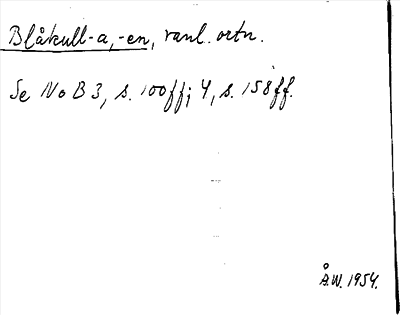 Blåkull-a, -en, vanl. ortn.
Se NoB 3, s. 100ff; 4, s. 158ff.
Å.W. 1954.